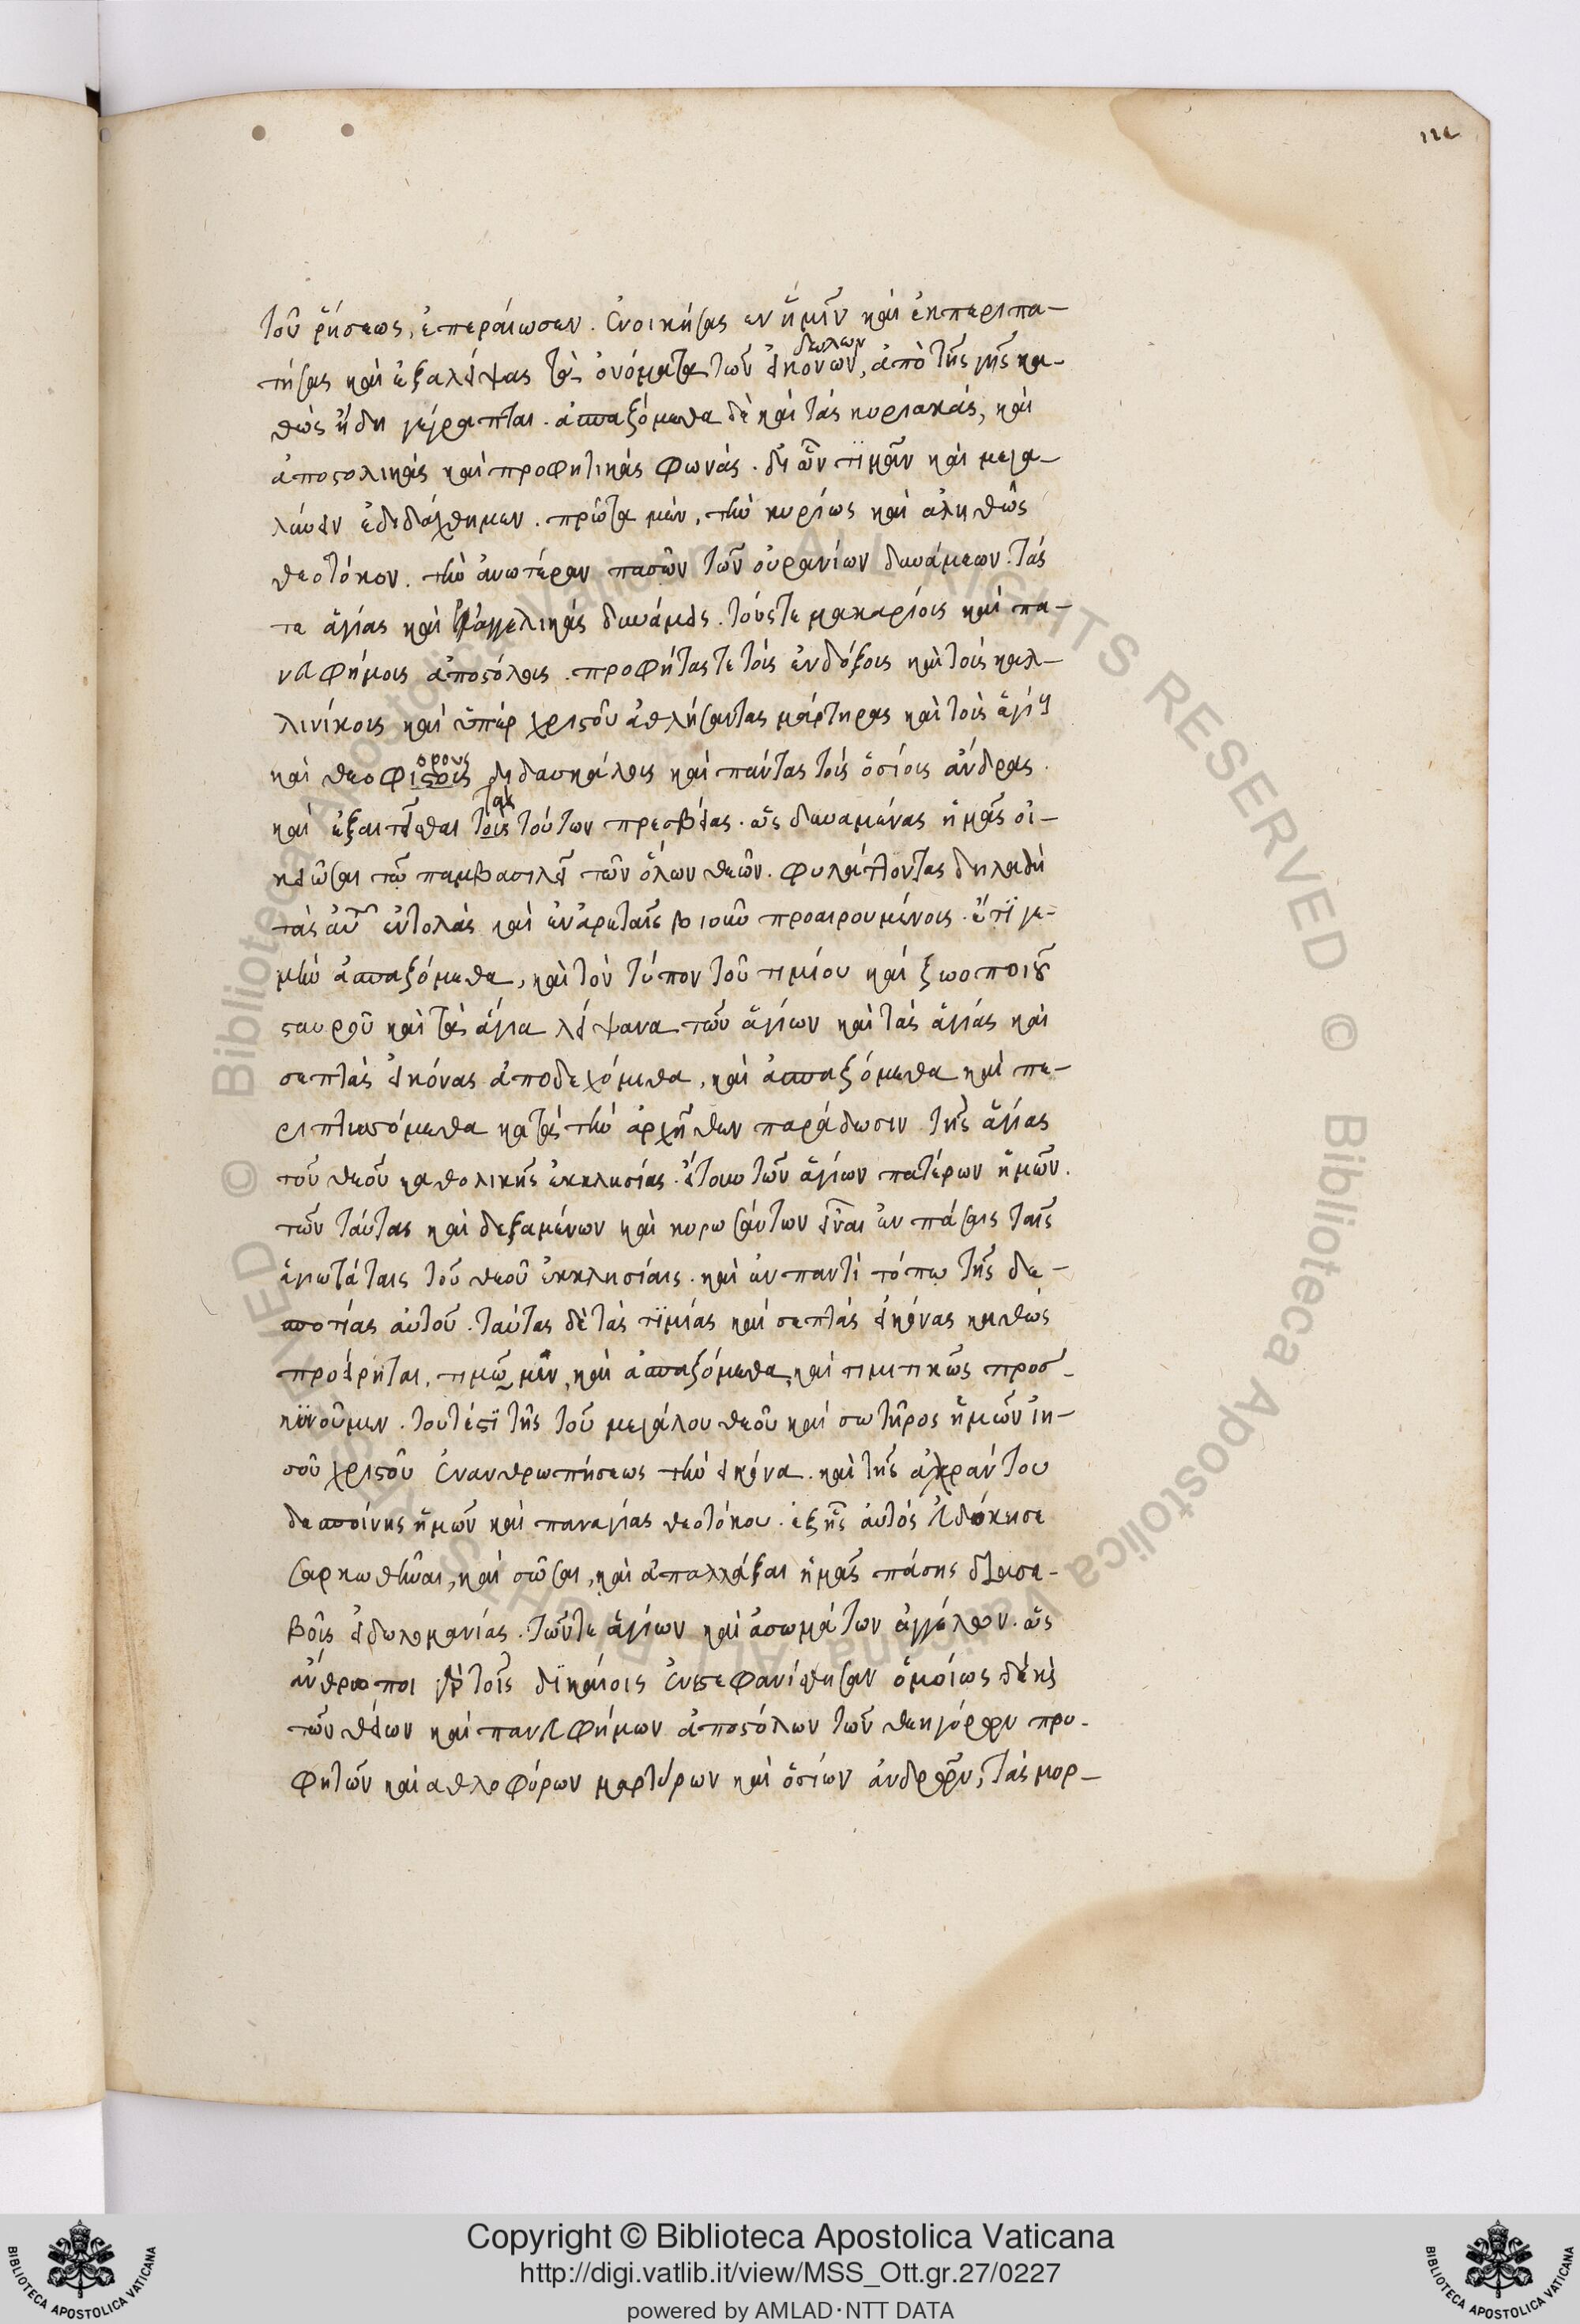 112
τοῦ ῥήσεως, ἐπεραίωσεν. ἐνοικήσας ἐν ἡμῖν καὶ ἐμπεριπα-
δώλων
τήσας καὶ ἐξαλείψας τὰ ὀνόματα τῶν εἰκόνων, ἀπὸ τῆς γῆς κα-
θὼς ἤδη γέγραπται. ἀσπαζόμεθα δὲ καὶ τὰς κυριακάς, καὶ
ἀποστολικὰς καὶ προφητικὰς φωνάς. δι ὧν τιμᾶν καὶ μεγα-
λύνειν ἐδιδάχθημεν. πρῶτα μὲν, τὴν κυρίως καὶ ἀληθῶς
θεοτόκον. τὴν ἀνωτέραν πασῶν τῶν οὐρανίων δυνάμεων. τάς
τε ἁγίας καὶ ἀγγελικὰς δυνάμεις. τούς τε μακαρίους καὶ πα-
νευφήμους ἀποστόλους. προφήτας τε τοὺς ἐνδόξους καὶ τοὺς καλ-
λινίκους καὶ ὑπὲρ χριστοῦ ἀθλήσαντας μάρτηρας καὶ τοὺς ἁγίους
όρους
καὶ θεοφιστους διδασκάλους καὶ πάντας τοὺς ὁσίους ἄνδρας.
τὰς
καὶ ἐξαιτεῖσθαι τοὺς τούτων πρεσβείας. ὡς δυναμένας ἡμᾶς οἰ-
κειῶσαι τῶ παμβασιλεῖ τῶν ὅλων θεῶν. φυλάττοντας δηλαδὴ
τὰς αὐτοῦ ἐντολὰς καὶ ἐναρεταῖς βιοῦν προαιρουμένους. ἔτϊ γε-
μὴν ἀσπαζόμεθα, καὶ τὸν τύπον τοῦ τιμίου καὶ ζωοποιοῦ
σταυροῦ καὶ τὰ ἅγια λείψανα τῶν ἁγίων καὶ τὰς ἁγίας καὶ
σεπτὰς εἰκόνας ἀποδεχόμεθα, καὶ ἀσπαζόμεθα καὶ πε-
ριπτυσόμεθα κατὰ τὴν ἀρχῆθεν παράδωσιν τῆς ἁγίας
τοῦ θεοῦ καθολικῆς ἐκκλησίας. εἴτουν τῶν ἁγίων πατέρων ἡμῶν.
τῶν ταύτας καὶ δεξαμένων καὶ κυρωσάντων εἶναι ἐν πάσαις ταῖς
ἁγιωτάταις τοῦ θεοῦ ἐκκλησίαις. καὶ ἐν παντὶ τόπω τῆς δε-
σποτίας αὐτοῦ. ταύτας δὲ τὰς τϊμίας καὶ σεπτὰς εἰκόνας καθὼς
προείρηται, τιμῶ μὲν, καὶ ἀσπαζόμεθα, καὶ τιμιτικῶς προσ-
κϋνοῦμεν. τουτέστϊ τῆς τοῦ μεγάλου θεοῦ καὶ σωτῆρος ἡμῶν ἰη-
σοῦ χριστοῦ ἐνανθρωπήσεως τὴν εἰκόνα. καὶ τῆς ἀχράντου
δεσποίνης ἡμῶν καὶ παναγίας θεοτόκου. ἐξ ἧς αὐτὸς εὐδόκησε
σαρκωθῆναι, καὶ σῶσαι, καὶ ἀπαλλάξαι ἡμᾶς πάσης δυσσε-
βοῦς εἰδωλομανίας. τῶν τε ἁγίων καὶ ἀσωμάτων ἀγγέλων. ὡς
ἄνθρωποι γὰρ τοῖς δϊκαίοις ἐνεφανίσθησαν ὁμοίως δὲ καὶ
τῶν θείων καὶ πανευφήμων ἀποστόλων τῶν θεηγόρων προ-
φητῶν καὶ αθλοφόρων μαρτύρων καὶ ὁσίων ἀνδρῶν, τὰς μορ-
Copyright © Biblioteca Apostolica Vaticana
http://digi.vatlib.it/view/MSS_Ott.gr.27/0227
powered by AMLAD·NTT DATA